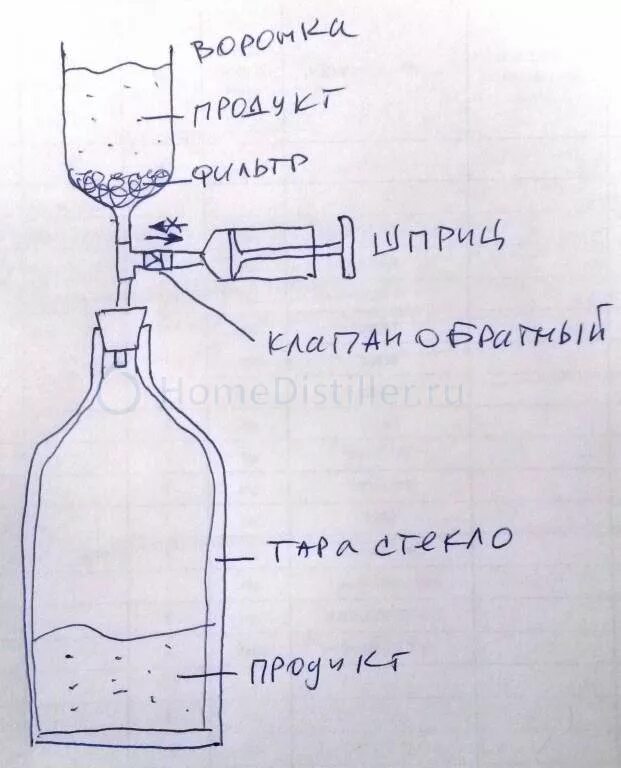 ВОРОНКА
ПРОДУКТ
ФИЛЬТР
ШПРИЦ
КЛАПАН ОБРАТНЫЙ
HomeDistiller.ru
ТАРА СТЕКЛО
ПРОДУКТ